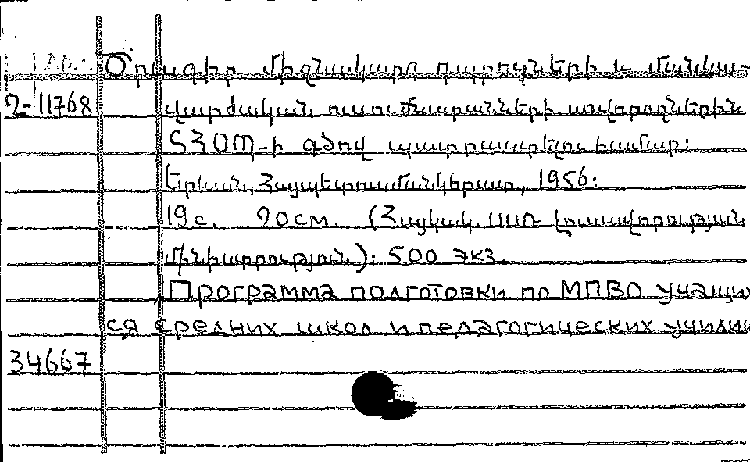 Ծրագիր միջնակարգ դպրոցների և մանկա-
2-11768 վարժական ուսումնարանների սովորողներին
ՏՀՕՊ-ի գծով պատրաստելու համար:
Երևան, Հայպետուսմանկհրատ, 1956:
19 с. 20 см. (Հայկակ. ՍՍՌ Լուսավորության
Մինիստրություն): 500 экз.
Программа подготовки по МПВО учащих
ся средних школ и педагогических училищ
34667